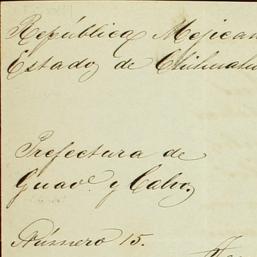 República Mejican
Estado de Chihuahu
Prefectura de
Guave. y Calvo,
Número 15.